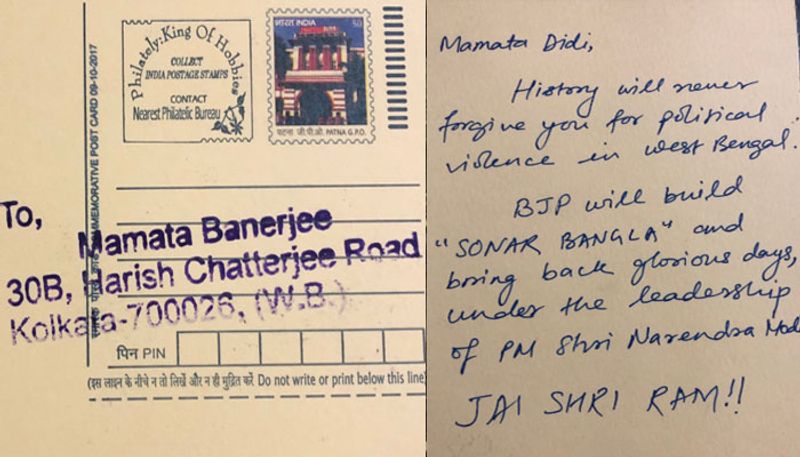 COMMEMORATIVE POST CARD 09-10-2017
Philately: King Of Hobbies
COLLECT
INDIA POSTAGE STAMPS
CONTACT
Nearest Philatelic Bureau
भारत INDIA
50
पटना जी.पी.ओ. PATNA G.P.O.
To,
Mamata Banerjee
30B, Harish Chatterjee Road
Kolkata-700026, (W.B.)
पिन PIN
(इस लाइन के नीचे न तो लिखें और न ही मुद्रित करें Do not write or print below this line)
Mamata Didi,
History will never
forgive you for political
violence in west Bengal.
BJP will build
"SONAR BANGLA" and
bring back glorious days,
under the leadership
of PM Shri Narendra Modi
JAI SHRI RAM!!